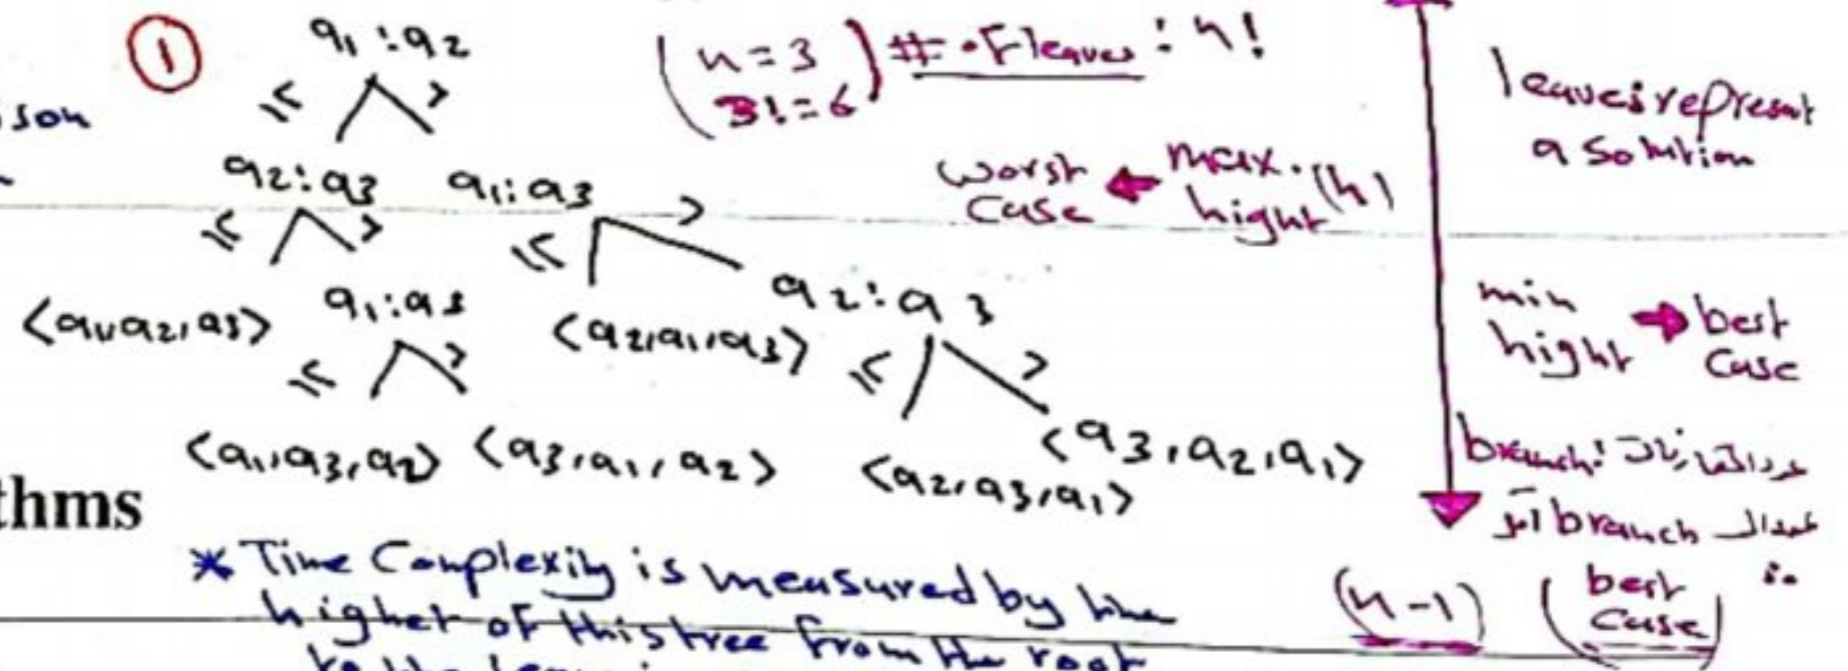 ①
a1 : a2
≤ >
son
a2 : a3
≤ >
a1 : a3
≤ >
<a1,a2,a3>
a1 : a3
≤ >
<a2,a1,a3>
a2 : a3
≤ >
<a1,a3,a2>
<a3,a1,a2>
<a2,a3,a1>
<a3,a2,a1>
(n=3
3!=6)
# of leaves : n!
worst
case ← max.
hight (h)
leaves represent
a solution
min
hight → best
case
branch:
branch
(n-1) (best
case)
thms
* Time Complexity is measured by the
higher of this tree from the root
to the